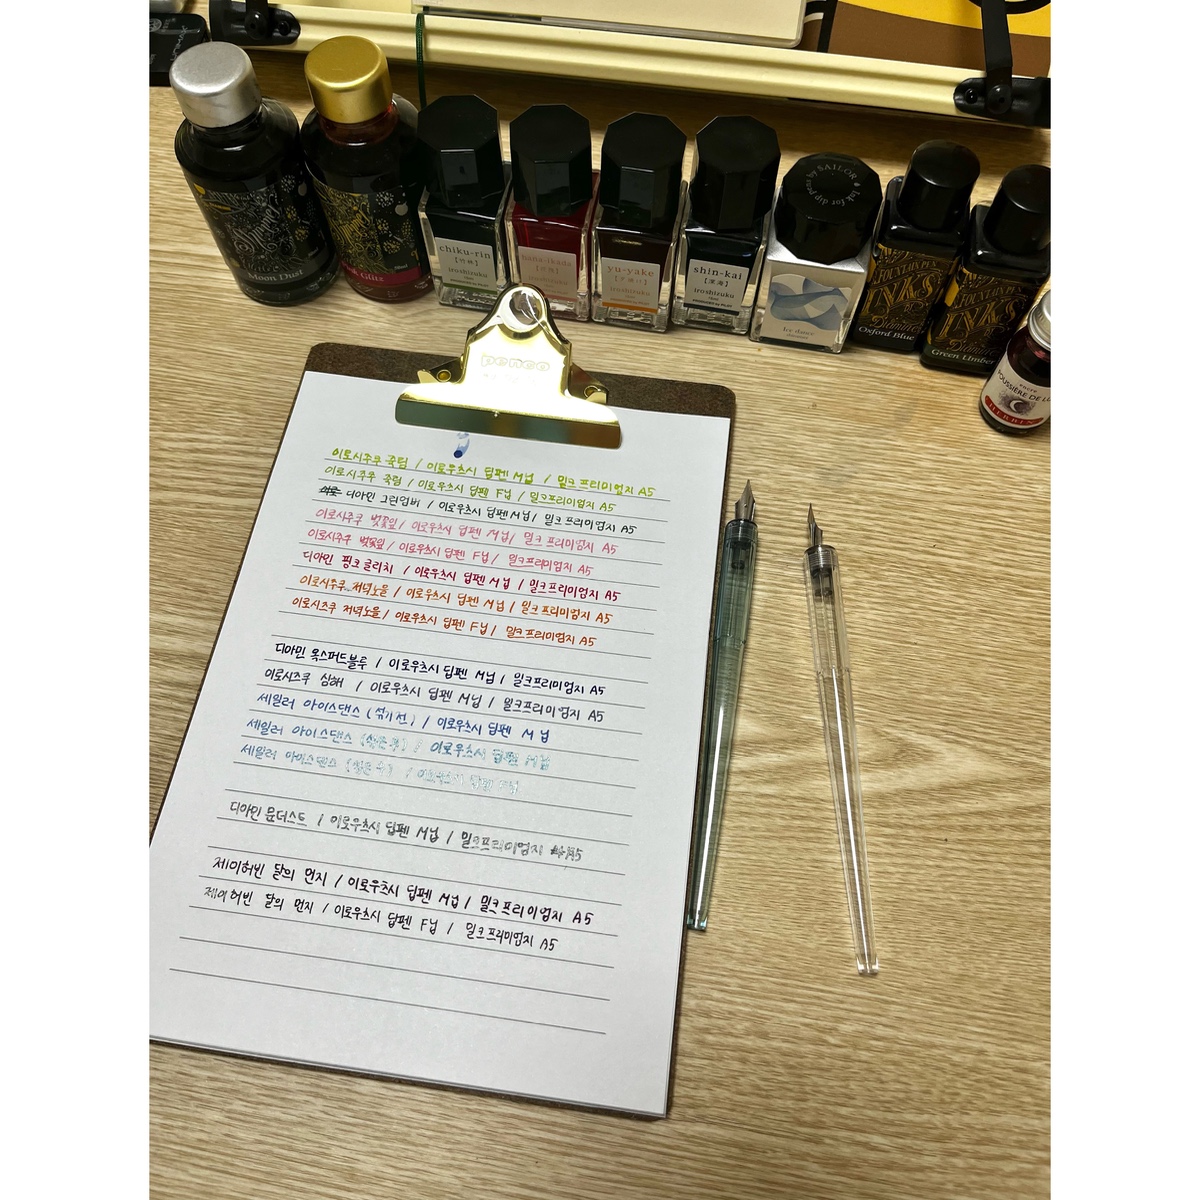 Moon Dust
Glitz
chiku-rin
[竹林]
iroshizuku
hana-ikada
iroshizuku
yu-yake
[夕焼け]
iroshizuku
shin-kai
[深海]
iroshizuku
Ink for dip pens by SAILOR
Ice dance
FOUNTAIN PEN
INKS
Diamine
Oxford Blue
FOUNTAIN PEN
INKS
Diamine
Green Umber
POUSSIÈRE DE LU
HERBIN
penco
이로시주쿠 죽림 / 이로우츠시 딥펜 M닙 / 밀크프리미엄지 A5
이로시주쿠 죽림 / 이로우츠시 딥펜 F닙 / 밀크프리미엄지 A5
디아민 그린엄버 / 이로우츠시 딥펜 M닙 / 밀크프리미엄지 A5
이로시주쿠 벚꽃잎 / 이로우츠시 딥펜 M닙 / 밀크프리미엄지 A5
이로시주쿠 벚꽃잎 / 이로우츠시 딥펜 F닙 / 밀크프리미엄지 A5
디아민 핑크글리치 / 이로우츠시 딥펜 M닙 / 밀크프리미엄지 A5
이로시주쿠 저녁노을 / 이로우츠시 딥펜 M닙 / 밀크프리미엄지 A5
이로시즈쿠 저녁노을 / 이로우츠시 딥펜 F닙 / 밀크프리미엄지 A5
디아민 옥스퍼드블루 / 이로우츠시 딥펜 M닙 / 밀크프리미엄지 A5
이로시즈쿠 심해 / 이로우츠시 딥펜 M닙 / 밀크프리미엄지 A5
세일러 아이스댄스 (섞기전) / 이로우츠시 딥펜 M닙
세일러 아이스댄스 (섞은후) / 이로우츠시 딥펜 M닙
세일러 아이스댄스 (섞은후) / 이로우츠시 딥펜 F닙
디아민 문더스트 / 이로우츠시 딥펜 M닙 / 밀크프리미엄지 A5
제이허빈 달의 먼지 / 이로우츠시 딥펜 M닙 / 밀크프리미엄지 A5
제이허빈 달의 먼지 / 이로우츠시 딥펜 F닙 / 밀크프리미엄지 A5